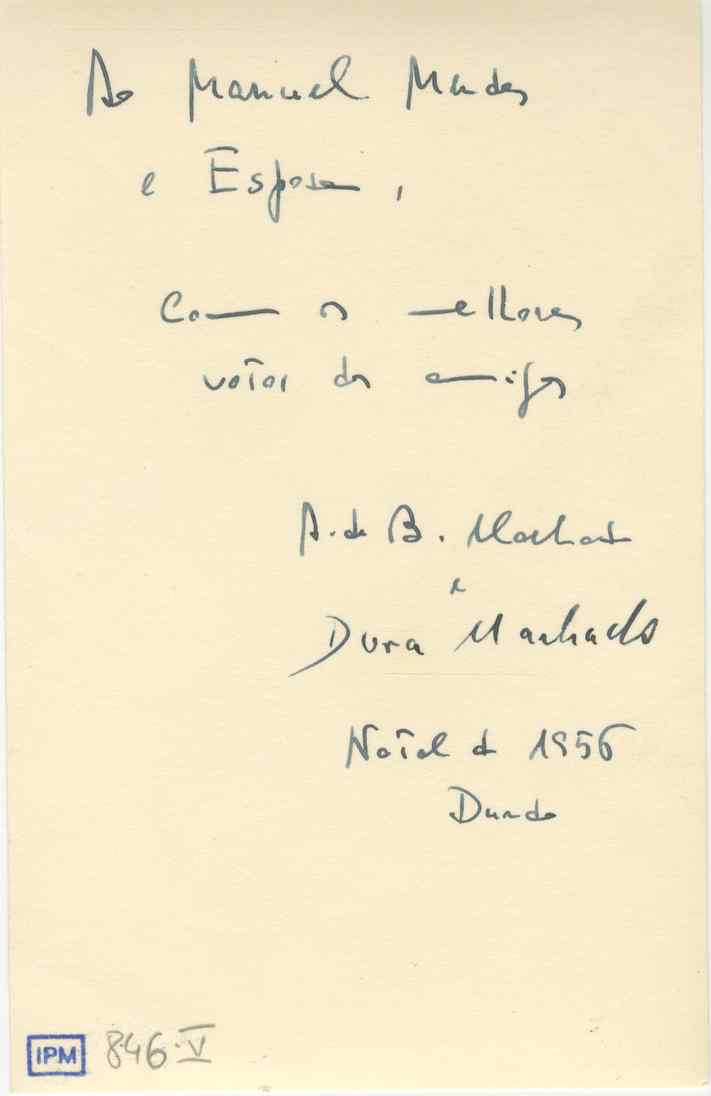 Ao Manuel Mendes
e Esposa,
Com os melhores
votos dos amigos
A. de B. Machado
e
Dora Machado
Natal de 1956
Dundo
IPM 846.V